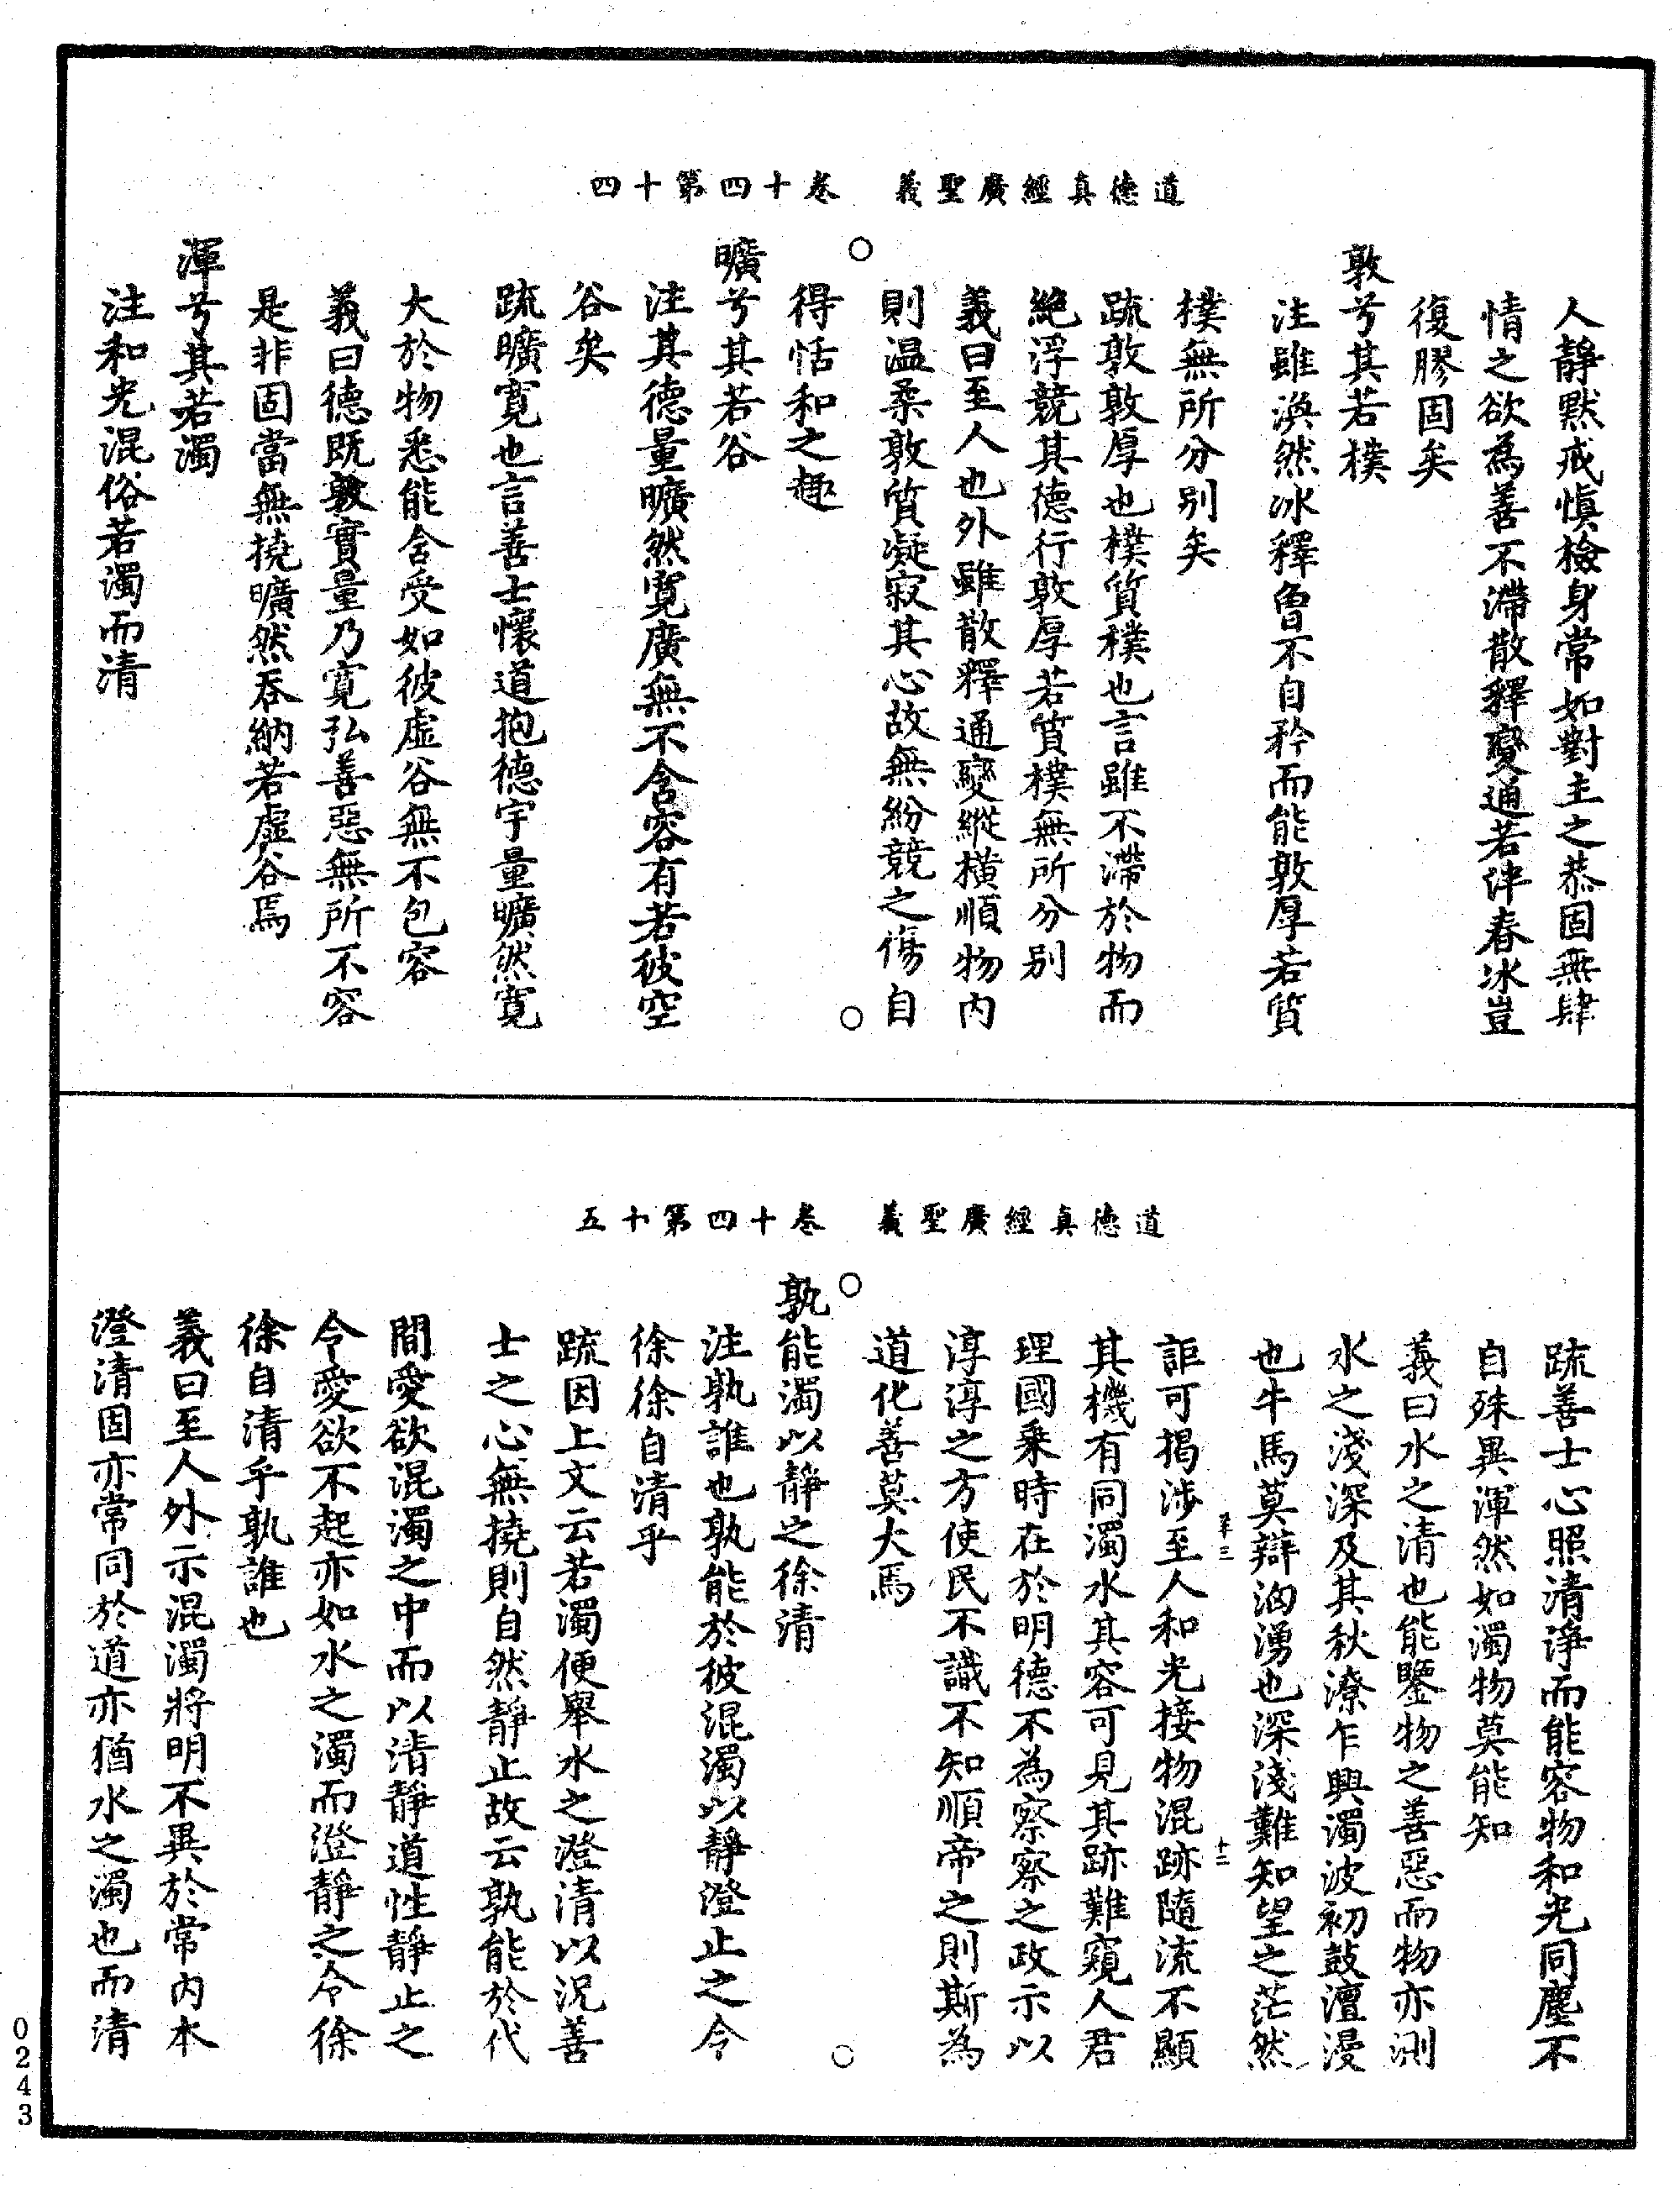 道德真經廣聖義　卷十四第十四
人靜默戒慎檢身常如對主之恭固無肆
情之欲為善不滯散釋變通若泮春冰豈
復膠固矣
敦兮其若樸
注雖渙然冰釋曾不自矜而能敦厚若質
樸無所分別矣
疏敦敦厚也樸質樸也言雖不滯於物而
絕浮競其德行敦厚若質樸無所分別
義曰至人也外雖散釋通變縱橫順物內
則溫柔敦質凝寂其心故無紛競之傷自
得恬和之趣
曠兮其若谷
注其德量曠然寬廣無不含容有若彼空
谷矣
疏曠寬也言善士懷道抱德宇量曠然寬
大於物悉能含受如彼虛谷無不包容
義曰德既敦實量乃寬弘善惡無所不容
是非固當無撓曠然吞納若虛谷焉
渾兮其若濁
注和光混俗若濁而清
道德真經廣聖義　卷十四第十五
疏善士心照清淨而能容物和光同塵不
自殊異渾然如濁物莫能知
義曰水之清也能鑒物之善惡而物亦測
水之淺深及其秋潦乍興濁波初鼓澶漫
也牛馬莫辯洶湧也深淺難知望之茫然
詎可揭涉至人和光接物混跡隨流不顯
其機有同濁水其容可見其跡難窺人君
理國乘時在於明德不為察察之政示以
淳淳之方使民不識不知順帝之則斯為
道化善莫大焉
孰能濁以靜之徐清
注孰誰也孰能於彼混濁以靜澄止之令
徐徐自清乎
疏因上文云若濁便舉水之澄清以況善
士之心無撓則自然靜止故云孰能於代
間愛欲混濁之中而以清靜道性靜止之
令愛欲不起亦如水之濁而澄靜之令徐
徐自清乎孰誰也
義曰至人外示混濁將明不異於常內本
澄清固亦常同於道亦猶水之濁也而清
0243